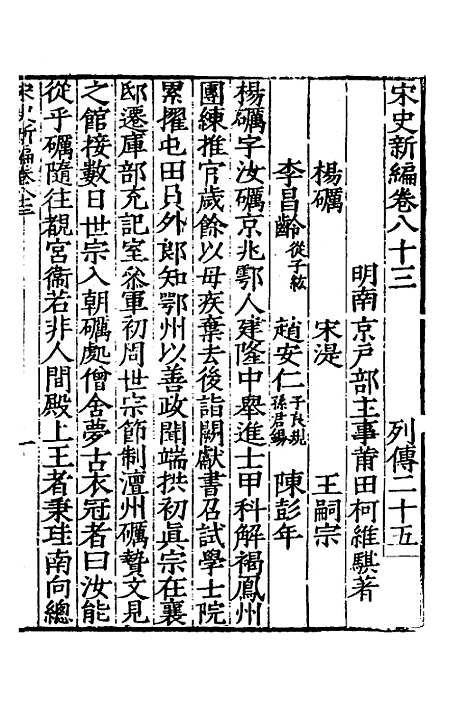 宋史新編卷八十三 列傳二十五
明南京戶部主事莆田柯維騏著
楊礪 宋湜 王嗣宗
李昌齡 從子紘 趙安仁 子良規 孫君錫 陳彭年
楊礪字汝礪京兆鄠人建隆中舉進士甲科解褐鳳州
團練推官歲餘以母疾棄去後詣闕獻書召試學士院
累擢屯田員外郎知鄂州以善政聞端拱初眞宗在襄
邸遷庫部充記室叅軍初周世宗節制澶州礪贄文見
之館接數日世宗入朝礪處僧舍夢古衣冠者曰汝能
從乎礪隨往覩宮衞若非人間殿上王者秉珪南向總
宋史新編卷八十三 一